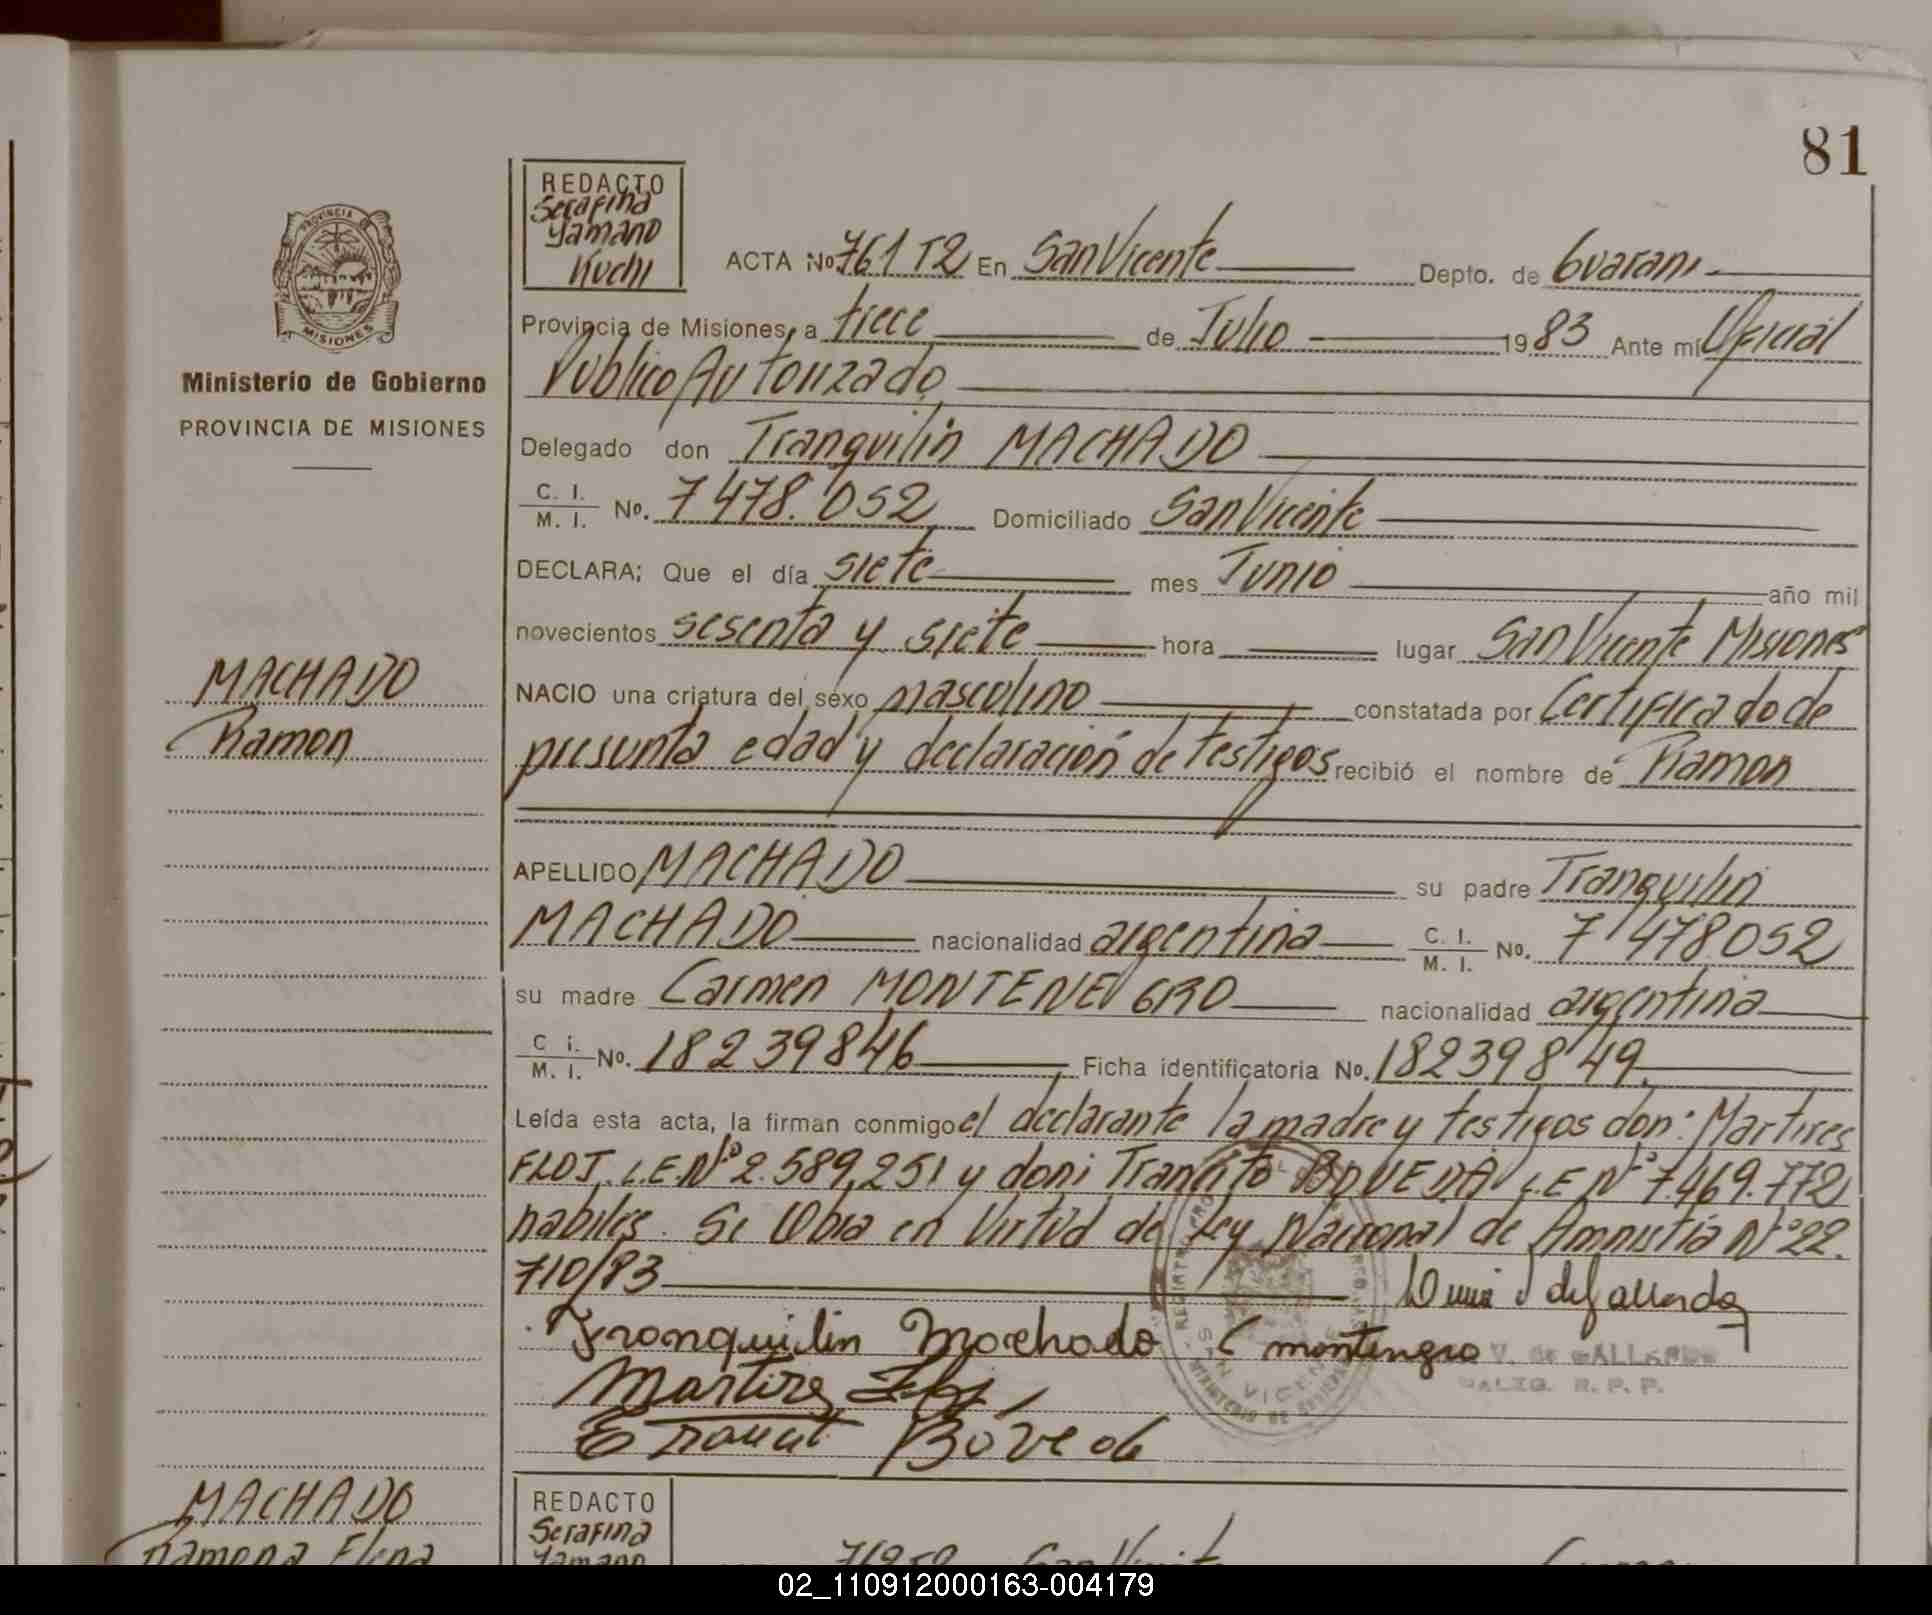 81
REDACTO
Serafina
Yamano
Kuchi
PROVINCIA
MISIONES
Ministerio de Gobierno
PROVINCIA DE MISIONES
MACHADO
Ramon
ACTA Nº 761 T2 En San Vicente Depto. de Guarani
Provincia de Misiones, a trece de Julio 1983 Ante mí Oficial
Publico Autorizado
Delegado don Tranquilin MACHADO
C. I. / M. I. Nº. 7478.052 Domiciliado San Vicente
DECLARA; Que el día siete mes Junio año mil
novecientos sesenta y siete hora lugar San Vicente Misiones
NACIO una criatura del sexo masculino constatada por Certificado de
presunta edad y declaración de testigos recibió el nombre de Ramon
APELLIDO MACHADO su padre Tranquilin
MACHADO nacionalidad argentina C. I. / M. I. Nº. 7478052
su madre Carmen MONTENEGRO nacionalidad argentina
C i. / M. I. Nº. 18239846 Ficha identificatoria Nº. 18239849.
Leída esta acta, la firman conmigo el declarante la madre y testigos don: Martires
FLOJ. L.E.Nº 2.589.251 y don: Transito BOVEDA L.E Nº 7.469.772
habiles. Se Obra en Virtud de Ley Nacional de Amnistía Nº 22.
710/83
Tranquilin Machado C montengro
V. de GALLARDO
R. P. P.
Martires
Boveda
SAN VICENTE
MACHADO
Ramona Elena
REDACTO
Serafina
Yamano
02_110912000163-004179